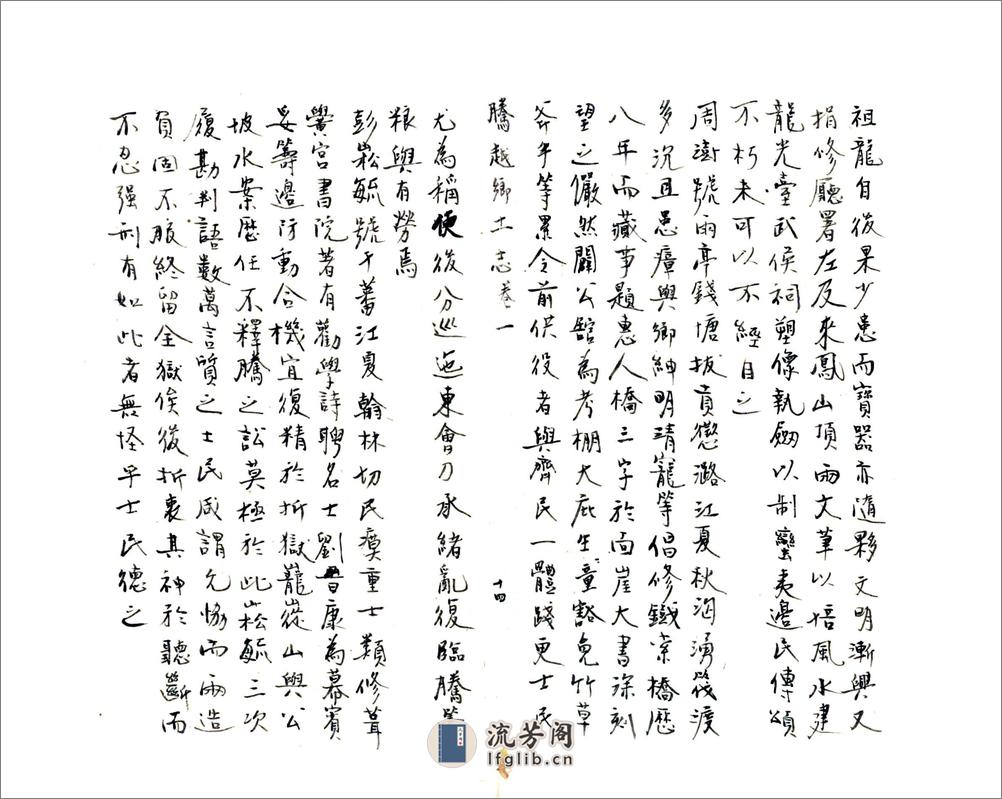 祖龍自後果少患而寶器亦隨夥文明漸興又
捐修廳署左及來鳳山頂兩文筆以培風水建
龍光臺武侯祠塑像執劔以制蠻夷邊民傳頌
不朽未可以不經目之
周澍號雨亭錢塘拔貢憖潞江夏秋洶湧筏渡
多沉且患瘴與鄉紳明清寵等倡修鐵索橋歷
八年而蕆事題惠人橋三字於面崖大書深刻
望之儼然闢公館為考棚大庇生童豁免竹草
斧手等累令前供役者與齊民一體踐更士民
騰越鄉土志卷一
十四
尤為稱便後分巡迤東會刀承緒亂復臨騰籌
粮與有勞焉
彭崧毓號于蕃江夏翰林切民瘼重士類修葺
黌宮書院著有勸學詩聘名士劉晋康為幕賓
妥籌邊防動合機宜復精於折獄巃嵸山與公
坡水案歷任不釋騰之訟莫極於此崧毓三次
履勘判語數萬言質之士民咸謂允恊而兩造
負固不服終留全獄俟後折衷其神於聽斷而
不忍强刑有如此者無怪乎士民德之
流芳阁
lfglib.cn